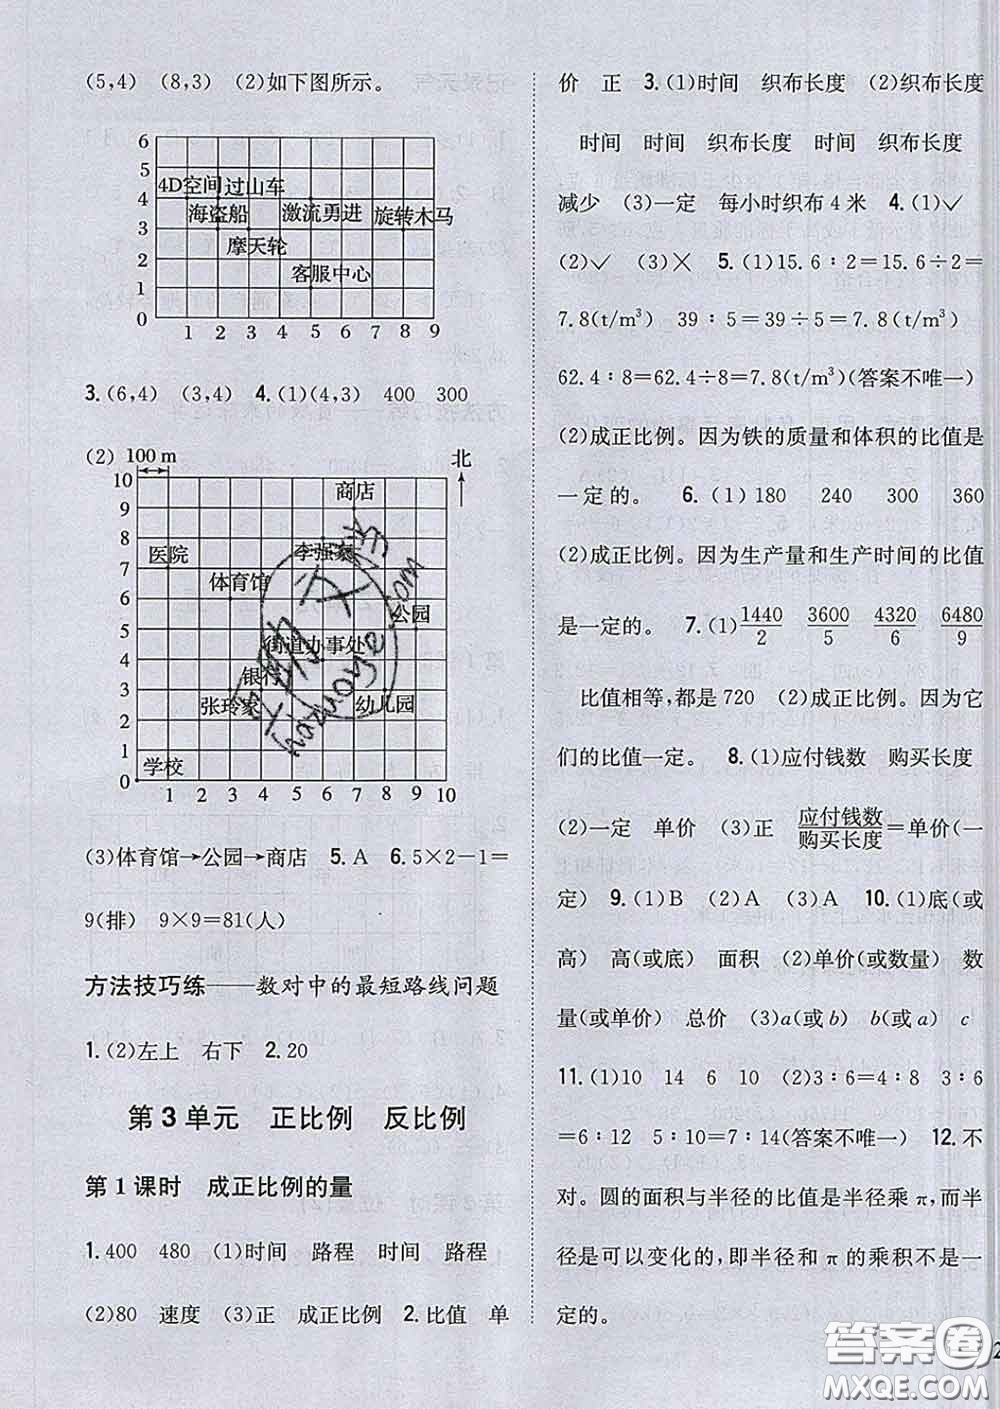 (5,4) (8,3) (2)如下图所示。
6
5
4 4D空间 过山车
海盗船 激流勇进 旋转木马
3
摩天轮
2
客服中心
1
0 1 2 3 4 5 6 7 8 9
3.(6,4) (3,4) 4.(1)(4,3) 400 300
(2) 100 m 北
10
商店
9
8
医院 李强家
7
体育馆
6
公园
5
街道办事处
4
银行
3
张玲家 幼儿园
2
1
学校
0 1 2 3 4 5 6 7 8 9 10
(3)体育馆→公园→商店 5.A 6.5×2－1＝
9(排) 9×9＝81(人)
方法技巧练——数对中的最短路线问题
1.(2)左上 右下 2.20
第3单元 正比例 反比例
第1课时 成正比例的量
1.400 480 (1)时间 路程 时间 路程
(2)80 速度 (3)正 成正比例 2.比值 单
价 正 3.(1)时间 织布长度 (2)织布长度
时间 时间 织布长度 时间 织布长度
减少 (3)一定 每小时织布4米 4.(1)✓
(2)✓ (3)✕ 5.(1)15.6∶2＝15.6÷2＝
7.8(t/m³) 39∶5＝39÷5＝7.8(t/m³)
62.4∶8＝62.4÷8＝7.8(t/m³)(答案不唯一)
(2)成正比例。因为铁的质量和体积的比值是
一定的。 6.(1)180 240 300 360
(2)成正比例。因为生产量和生产时间的比值
是一定的。 7.(1)1440/2 3600/5 4320/6 6480/9
比值相等,都是720 (2)成正比例。因为它
们的比值一定。 8.(1)应付钱数 购买长度
(2)一定 单价 (3)正 应付钱数/购买长度＝单价(一
定) 9.(1)B (2)A (3)A 10.(1)底(或
高) 高(或底) 面积 (2)单价(或数量) 数
量(或单价) 总价 (3)a(或b) b(或a) c
11.(1)10 14 6 10 (2)3∶6＝4∶8 3∶6
＝6∶12 5∶10＝7∶14(答案不唯一) 12.不
对。圆的面积与半径的比值是半径乘π,而半
径是可以变化的,即半径和π的乘积不是一
定的。
答案圈
MXQE.COM
2